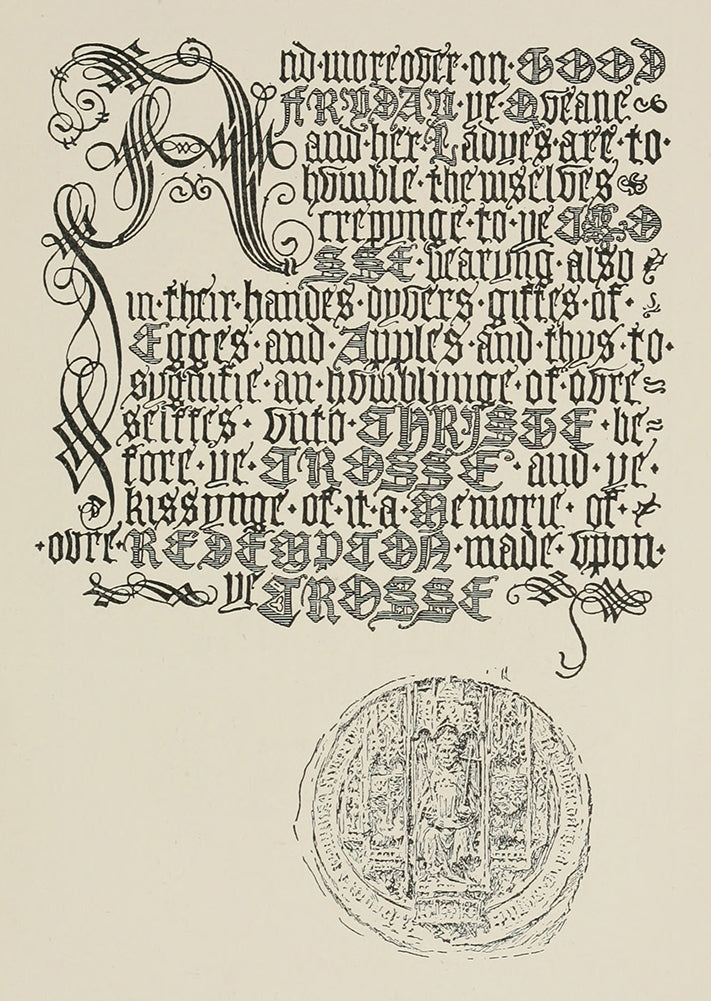 And·moreover·on·GOOD
FRYDAY·ye·Qveane
and·her·Ladyes·are·to·
hvmble·themselves
crepynge·to·ye CRO
SSE·bearyng·also
in·their·handes·dyvers·giftes·of·
Egges·and·Apples·and·thus·to·
sygnifie·an·hvmblynge·of·ovre
selffes·vnto·CHRISTE·be=
fore·ye·CROSSE·and·ye·
kissynge·of·it·a·Memorie·of·
·ovre·REDEMPTON·made·vpon·
ye CROSSE